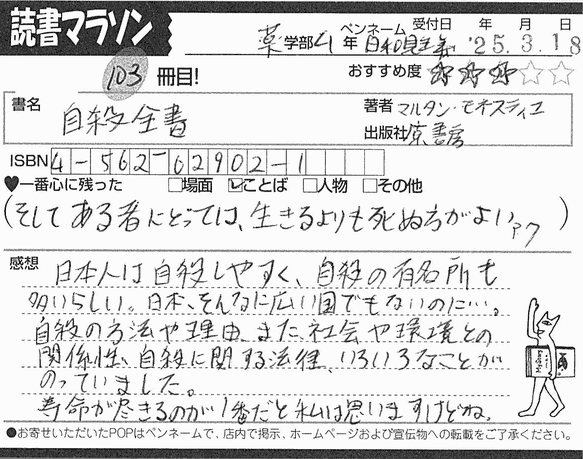 読書マラソン
薬学部4年 ペンネーム 日和見主義 受付日 '25年3月18日
103冊目!
おすすめ度 ☆☆☆☆☆
書名 自殺全書
著者 マルタン・モネスティエ
出版社 原書房
ISBN 4-562-02902-1
♥一番心に残った □場面 ☑ことば □人物 □その他
(そしてある者にとっては、生きるよりも死ぬ方がよい)
感想 日本人は自殺しやすく、自殺の有名所も
多いらしい。日本、そんなに広い国でもないのに…。
自殺の方法や理由、また、社会や環境との
関係性、自殺に関する法律、いろいろなことが
のっていました。
寿命が尽きるのが1番だと私は思いますけどね。
●お寄せいただいたPOPはペンネームで、店内で掲示、ホームページおよび宣伝物への転載をご了承ください。